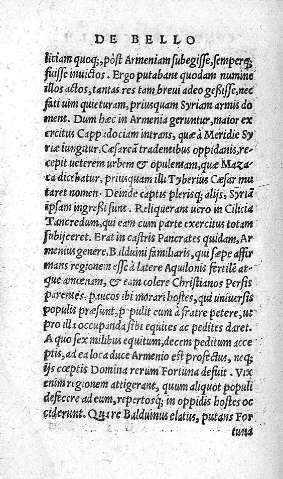 DE BELLO
litiam quoq;, pòst Armeniam subegisse, semperq;
fuisse inuictos. Ergo putabant quodam numine
illos actos, tantas res tam breui adeo geßisse, nec
fati uim quieturam, priusquam Syriam armis do
ment. Dum hæc in Armenia geruntur, maior ex
ercitus Cappadociam intrans, quæ à Meridie Sy
riæ iungitur. Cæsaream tradentibus oppidanis, re-
cepit ueterem urbem & opulentam, quæ Maza
ca dicebatur, priusquam illi Tyberius Cæsar mu
taret nomen. Deinde captis plerisq; alijs, Syriã
ipsam ingreßi sunt. Reliquerant uero in Cilicia
Tancredum, qui eam cum parte exercitus totam
subijceret. Erat in castris Pancrates quidam, Ar
menius genere, Balduini familiaris, qui sæpe affir
mans regionem esse à latere Aquilonis fertilẽ at
que amœnam, & eam colere Christianos Persis
parentes, paucos ibi morari hostes, qui uniuersis
populis præsunt, ppulit eum à fratre petere, ut
pro illa occupanda sibi equites ac pedites daret.
A quo sex milibus equitum, decem peditum acce
ptis, ad ea loca duce Armenio est profectus, neq;
ijs cœptis Domina rerum Fortuna defuit. Vix
enim regionem attigerant, quum aliquot populi
defecere ad eum, repertosq; in oppidis hostes oc
ciderunt. Quare Balduinus elatus, putans For
tuna